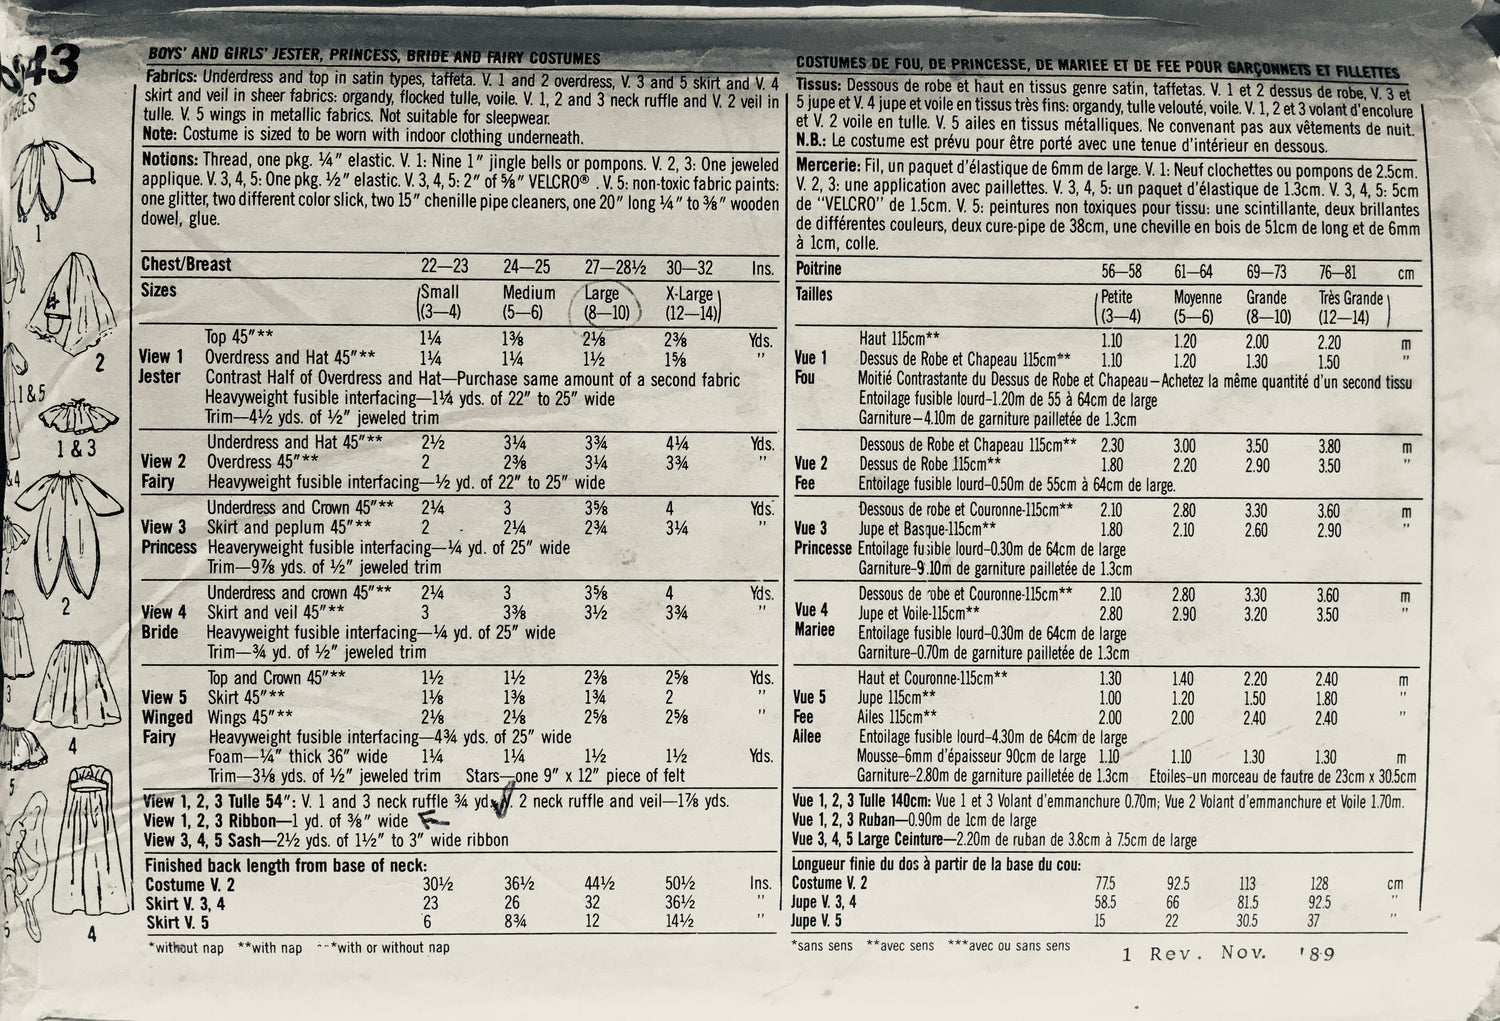 43
BOYS' AND GIRLS' JESTER, PRINCESS, BRIDE AND FAIRY COSTUMES
Fabrics: Underdress and top in satin types, taffeta. V. 1 and 2 overdress, V. 3 and 5 skirt and V. 4
skirt and veil in sheer fabrics: organdy, flocked tulle, voile. V. 1, 2 and 3 neck ruffle and V. 2 veil in
tulle. V. 5 wings in metallic fabrics. Not suitable for sleepwear.
Note: Costume is sized to be worn with indoor clothing underneath.
Notions: Thread, one pkg. ¼" elastic. V. 1: Nine 1" jingle bells or pompons. V. 2, 3: One jeweled
applique. V. 3, 4, 5: One pkg. ½" elastic. V. 3, 4, 5: 2" of ⅝" VELCRO® . V. 5: non-toxic fabric paints:
one glitter, two different color slick, two 15" chenille pipe cleaners, one 20" long ¼" to ⅜" wooden
dowel, glue.
Chest/Breast 22—23 24—25 27—28½ 30—32 Ins.
Sizes (Small Medium Large X-Large)
(3—4) (5—6) (8—10) (12—14)
Top 45"** 1¼ 1⅜ 2⅛ 2⅜ Yds.
View 1 Overdress and Hat 45"** 1¼ 1¼ 1½ 1⅝ "
Jester Contrast Half of Overdress and Hat—Purchase same amount of a second fabric
Heavyweight fusible interfacing—1¼ yds. of 22" to 25" wide
Trim—4½ yds. of ½" jeweled trim
Underdress and Hat 45"** 2½ 3¼ 3¾ 4¼ Yds.
View 2 Overdress 45"** 2 2⅜ 3¼ 3¾ "
Fairy Heavyweight fusible interfacing—½ yd. of 22" to 25" wide
Underdress and Crown 45"** 2¼ 3 3⅝ 4 Yds.
View 3 Skirt and peplum 45"** 2 2¼ 2¾ 3¼ "
Princess Heaveryweight fusible interfacing—¼ yd. of 25" wide
Trim—9⅞ yds. of ½" jeweled trim
Underdress and crown 45"** 2¼ 3 3⅝ 4 Yds.
View 4 Skirt and veil 45"** 3 3⅜ 3½ 3¾ "
Bride Heavyweight fusible interfacing—¼ yd. of 25" wide
Trim—¾ yd. of ½" jeweled trim
Top and Crown 45"** 1½ 1½ 2⅜ 2⅝ Yds.
View 5 Skirt 45"** 1⅛ 1⅜ 1¾ 2 "
Winged Wings 45"** 2⅛ 2⅛ 2⅝ 2⅝ "
Fairy Heavyweight fusible interfacing—4¾ yds. of 25" wide
Foam—¼" thick 36" wide 1¼ 1¼ 1½ 1½ Yds.
Trim—3⅛ yds. of ½" jeweled trim Stars—one 9" x 12" piece of felt
View 1, 2, 3 Tulle 54": V. 1 and 3 neck ruffle ¾ yd. 2 neck ruffle and veil—1⅞ yds.
View 1, 2, 3 Ribbon—1 yd. of ⅜" wide
View 3, 4, 5 Sash—2½ yds. of 1½" to 3" wide ribbon
Finished back length from base of neck:
Costume V. 2 30½ 36½ 44½ 50½ Ins.
Skirt V. 3, 4 23 26 32 36½ "
Skirt V. 5 6 8¾ 12 14½ "
*without nap **with nap ***with or without nap
COSTUMES DE FOU, DE PRINCESSE, DE MARIEE ET DE FEE POUR GARÇONNETS ET FILLETTES
Tissus: Dessous de robe et haut en tissus genre satin, taffetas. V. 1 et 2 dessus de robe, V. 3 et
5 jupe et V. 4 jupe et voile en tissus très fins: organdy, tulle velouté, voile. V. 1, 2 et 3 volant d'encolure
et V. 2 voile en tulle. V. 5 ailes en tissus métalliques. Ne convenant pas aux vêtements de nuit.
N.B.: Le costume est prévu pour être porté avec une tenue d'intérieur en dessous.
Mercerie: Fil, un paquet d'élastique de 6mm de large. V. 1: Neuf clochettes ou pompons de 2.5cm.
V. 2, 3: une application avec paillettes. V. 3, 4, 5: un paquet d'élastique de 1.3cm. V. 3, 4, 5: 5cm
de "VELCRO" de 1.5cm. V. 5: peintures non toxiques pour tissu: une scintillante, deux brillantes
de différentes couleurs, deux cure-pipe de 38cm, une cheville en bois de 51cm de long et de 6mm
à 1cm, colle.
Poitrine 56—58 61—64 69—73 76—81 cm
Tailles (Petite Moyenne Grande Très Grande)
(3—4) (5—6) (8—10) (12—14)
Haut 115cm** 1.10 1.20 2.00 2.20 m
Vue 1 Dessus de Robe et Chapeau 115cm** 1.10 1.20 1.30 1.50 "
Fou Moitié Contrastante du Dessus de Robe et Chapeau—Achetez la même quantité d'un second tissu
Entoilage fusible lourd—1.20m de 55 à 64cm de large
Garniture—4.10m de garniture pailletée de 1.3cm
Dessous de Robe et Chapeau 115cm** 2.30 3.00 3.50 3.80 m
Vue 2 Dessus de Robe 115cm** 1.80 2.20 2.90 3.50 "
Fee Entoilage fusible lourd—0.50m de 55cm à 64cm de large.
Dessous de robe et Couronne-115cm** 2.10 2.80 3.30 3.60 m
Vue 3 Jupe et Basque-115cm** 1.80 2.10 2.60 2.90 "
Princesse Entoilage fusible lourd—0.30m de 64cm de large
Garniture-9.10m de garniture pailletée de 1.3cm
Dessous de robe et Couronne-115cm** 2.10 2.80 3.30 3.60 m
Vue 4 Jupe et Voile-115cm** 2.80 2.90 3.20 3.50 "
Mariee Entoilage fusible lourd—0.30m de 64cm de large
Garniture—0.70m de garniture pailletée de 1.3cm
Haut et Couronne-115cm** 1.30 1.40 2.20 2.40 m
Vue 5 Jupe 115cm** 1.00 1.20 1.50 1.80 "
Fee Ailes 115cm** 2.00 2.00 2.40 2.40 "
Ailee Entoilage fusible lourd—4.30m de 64cm de large
Mousse—6mm d'épaisseur 90cm de large 1.10 1.10 1.30 1.30 m
Garniture—2.80m de garniture pailletée de 1.3cm Etoiles—un morceau de fautre de 23cm x 30.5cm
Vue 1, 2, 3 Tulle 140cm: Vue 1 et 3 Volant d'emmanchure 0.70m; Vue 2 Volant d'emmanchure et Voile 1.70m.
Vue 1, 2, 3 Ruban—0.90m de 1cm de large
Vue 3, 4, 5 Large Ceinture—2.20m de ruban de 3.8cm à 7.5cm de large
Longueur finie du dos à partir de la base du cou:
Costume V. 2 77.5 92.5 113 128 cm
Jupe V. 3, 4 58.5 66 81.5 92.5 "
Jupe V. 5 15 22 30.5 37 "
*sans sens **avec sens ***avec ou sans sens
1 Rev. Nov. '89
1
2
1 & 5
1 & 3
&4
2
2
3
4
5
4